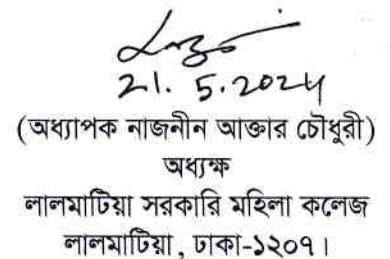 21. 5. 2024
(অধ্যাপক নাজনীন আক্তার চৌধুরী)
অধ্যক্ষ
লালমাটিয়া সরকারি মহিলা কলেজ
লালমাটিয়া, ঢাকা-১২০৭।